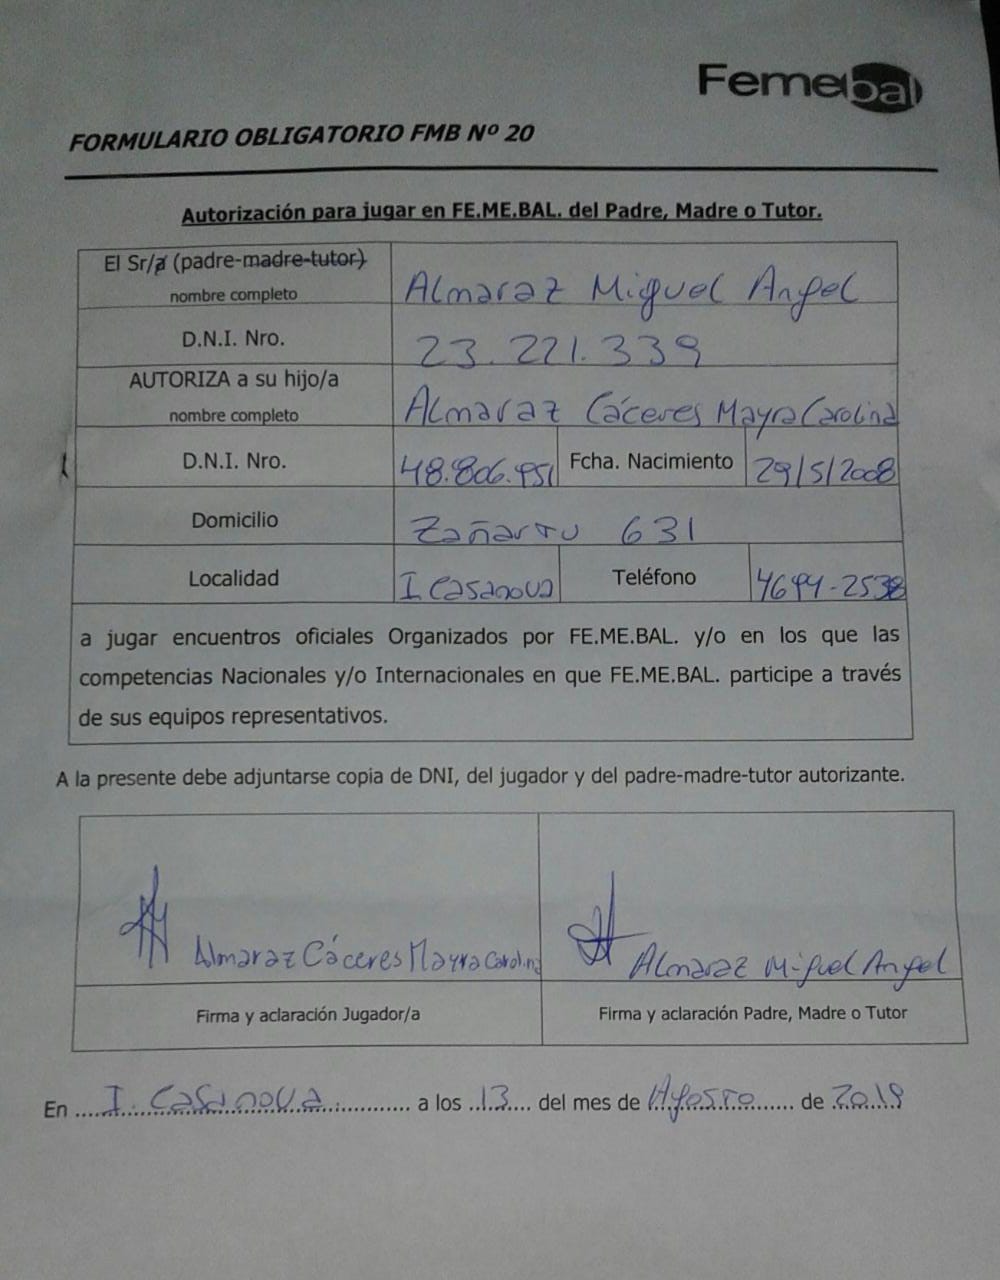 Femebal
FORMULARIO OBLIGATORIO FMB Nº 20
Autorización para jugar en FE.ME.BAL. del Padre, Madre o Tutor.
El Sr/a (padre-madre-tutor)
nombre completo
Almaraz Miguel Angel
D.N.I. Nro.
23.221.339
AUTORIZA a su hijo/a
nombre completo
Almaraz Cáceres Mayra Carolina
D.N.I. Nro. 48.806.951 Fcha. Nacimiento 29/5/2008
Domicilio Zañartu 631
Localidad I. Casanova Teléfono 4694-2538
a jugar encuentros oficiales Organizados por FE.ME.BAL. y/o en los que las
competencias Nacionales y/o Internacionales en que FE.ME.BAL. participe a través
de sus equipos representativos.
A la presente debe adjuntarse copia de DNI, del jugador y del padre-madre-tutor autorizante.
Almaraz Cáceres Mayra Carolina
Almaraz Miguel Angel
Firma y aclaración Jugador/a
Firma y aclaración Padre, Madre o Tutor
En I. Casanova a los 13 del mes de Agosto de 2019